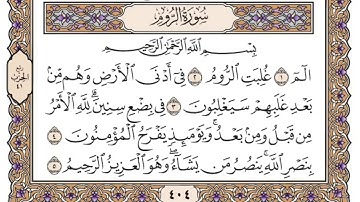 سُورَةُ الرُّومِ
بِسْمِ اللَّهِ الرَّحْمَٰنِ الرَّحِيمِ
الٓمٓ ١ غُلِبَتِ الرُّومُ ٢ فِىٓ أَدْنَى الْأَرْضِ وَهُم مِّنۢ
بَعْدِ غَلَبِهِمْ سَيَغْلِبُونَ ٣ فِى بِضْعِ سِنِينَ ۗ لِلَّهِ الْأَمْرُ
مِن قَبْلُ وَمِنۢ بَعْدُ ۚ وَيَوْمَئِذٍ يَفْرَحُ الْمُؤْمِنُونَ ٤
بِنَصْرِ اللَّهِ ۚ يَنصُرُ مَن يَشَآءُ ۖ وَهُوَ الْعَزِيزُ الرَّحِيمُ ٥
ربع
الحزب
٤١
٤٠٤